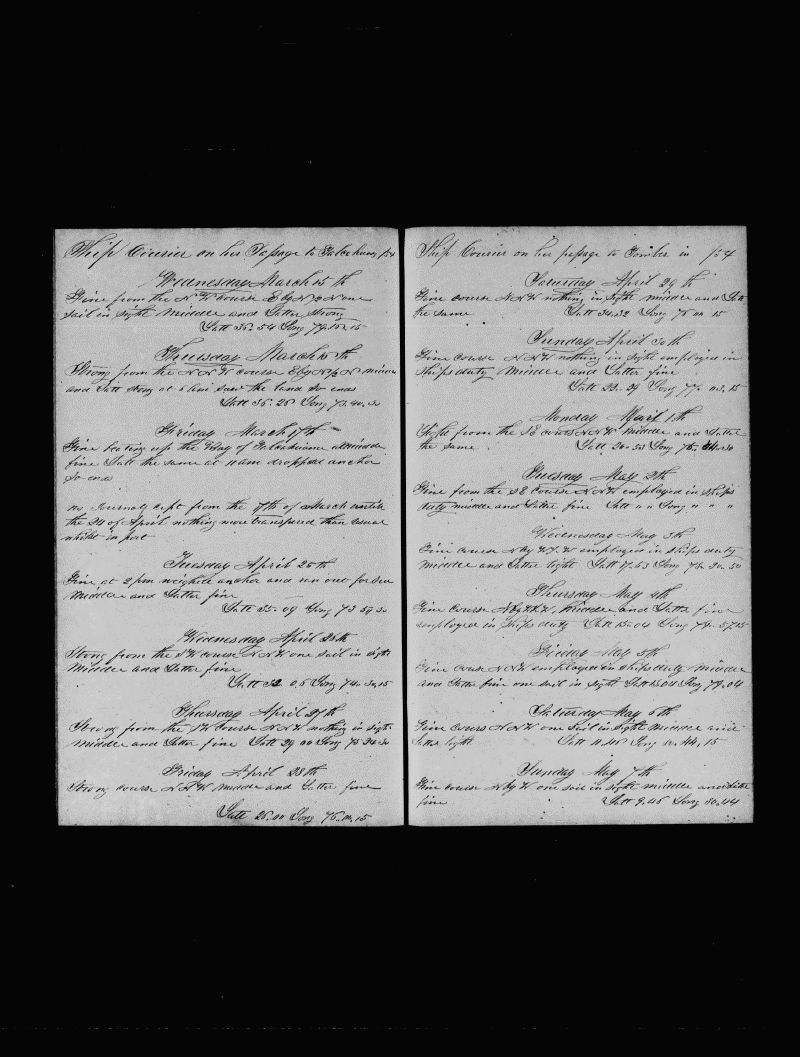 Ship Courier on her Passage to Talcahuano
Wednesday March 15 th
Fine from the N W course E by N one
sail in sight Middle and Latter Strong
Latt 35.54 Long 79.15.15
Thursday March 16 th
Strong from the N N W course E by N middle
and Latt Strong at 6 am saw the land So ends
Latt 36.26 Long 73.40.30
Friday March 17 th
Fine beating up the Bay of middle
fine Latt the same at 11 am dropped anchor
So ends
no Journal kept from the 17th of March until
the 24 of April nothing more transpired than usual
whilst in port
Tuesday April 25 th
Fine at 2 pm weighed anchor and run out for Sea
Middle and Latter fine
Latt 35.09 Long 73 59 30
Wednesday April 26th
Strong from the S W course N N W one sail in sight
Middle and Latter fine
Latt 32 05 Long 74.30.15
Thursday April 27th
Strong from the S W Course N N W nothing in sight
Middle and Latter fine Latt 29 00 Long 75 34 30
Friday April 28th
Strong course N N W Middle and Latter fine
Latt 26.00 Long 76.10.15
Ship Courier on her passage to Tombes in 154
Saturday April 29 th
Fine course N N W nothing in sight middle and Latt
the same Latt 24.32 Long 76 00 15
Sunday April 30th
Fine course N N W nothing in sight employed in
Ships duty Middle and Latter fine
Latt 22.29 Long 77. 03.15
Monday May 1th
Light from the S E cours N N W Middle and Latter
the same Latt 20-53 Long 76.
Tuesday May 2th
Fine from the S E Course N N W employed in Ships
duty middle and Latter fine Latt " " Long " " "
Wednesday May 3th
Fine course N by W employed in Ships duty
Middle and Latter light Latt 17.53 Long 78.30.30
Thursday May 4th
Fine course middle and Latter fine
employed in Ships duty Latt 15.04 Long 79.57.15
Friday May 5th
Fine cours N N W employed in Ships duty Middle
and Latter fine one sail in sight Latt 13.04 Long 79.04
Saturday May 6th
Fine cours N N W one Sail in sight Middle and
Latter light Latt 11.46 Long 80.44.15
Sunday May 7th
Fine course N by W one sail in sight middle and latter
fine Latt 9.46 Long 80.44